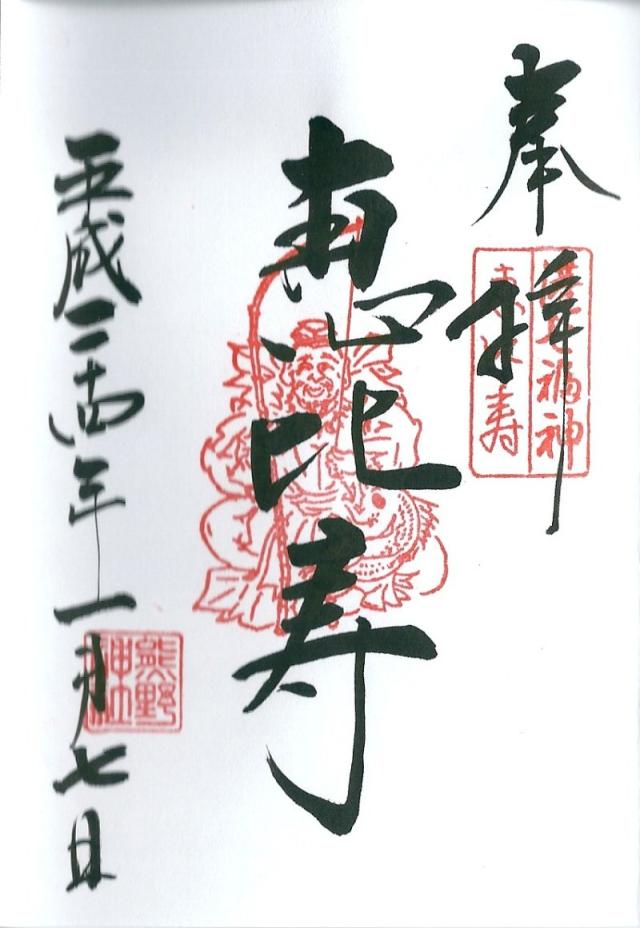 奉拝
七福神
恵比寿
恵比寿
平成二十四年一月七日
熊野
神社